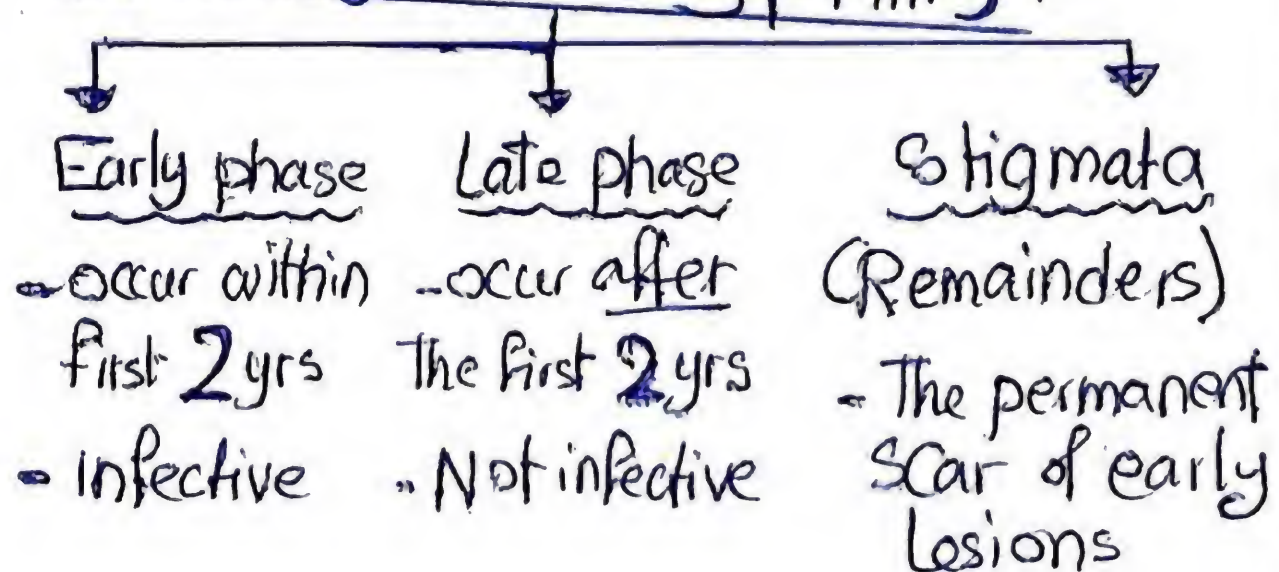 Early phase
- occur within
first 2 yrs
- Infective
Late phase
- occur after
The first 2 yrs
- Not infective
Stigmata
(Remainders)
- The permanent
Scar of early
Lesions